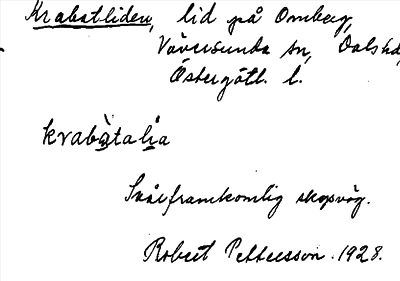 Krabatliden, lid på Omberg,
Väversunda sn, Dals hd,
Östergötl. l.
krabàtalia
Svårframkomlig skogsväg.
Robert Pettersson. 1928.